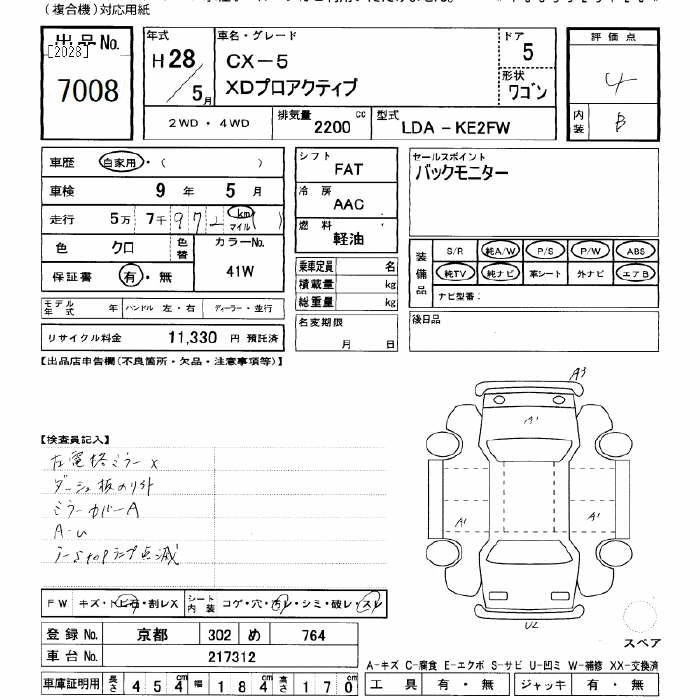 (複合機)対応用紙
出品No.
[2028]
7008
年式
H28/5月
車名・グレード
CX-5
XDプロアクティブ
ドア
5
形状
ワゴン
評価点
4
内装
B
2WD・4WD
排気量
2200 cc
型式
LDA-KE2FW
車歴 自家用・( )
車検 9年 5月
走行 5万 7千 9 7 2 km マイル ( )
色 クロ
色替
カラーNo.
41W
保証書 有・無
モデル年式 年 ハンドル 左・右 ディーラー・並行
リサイクル料金 11,330 円 預託済
シフト
FAT
冷房
AAC
燃料
軽油
乗車定員 名
積載量 kg
総重量 kg
名変期限
月 日
セールスポイント
バックモニター
装備品
S/R 純A/W P/S P/W ABS
純TV 純ナビ 革シート 外ナビ エアB
ナビ型番:
後日品
【出品店申告欄(不良箇所・欠品・注意事項等)】
【検査員記入】
左電格ミラーx
ダッシュ板のり外
ミラーカバーA
A-U
A3
A1
A1
A1
U2
スペア
FW キズ・トビ石・割レX シート内装 コゲ・穴・汚レ・シミ・破レ・スレ
登録No. 京都 302 め 764
車台No. 217312
車庫証明用 長さ 454cm 幅 184cm 高さ 170cm
A-キズ C-腐食 E-エクボ S-サビ U-凹ミ W-補修 XX-交換済
工具 有・無 ジャッキ 有・無